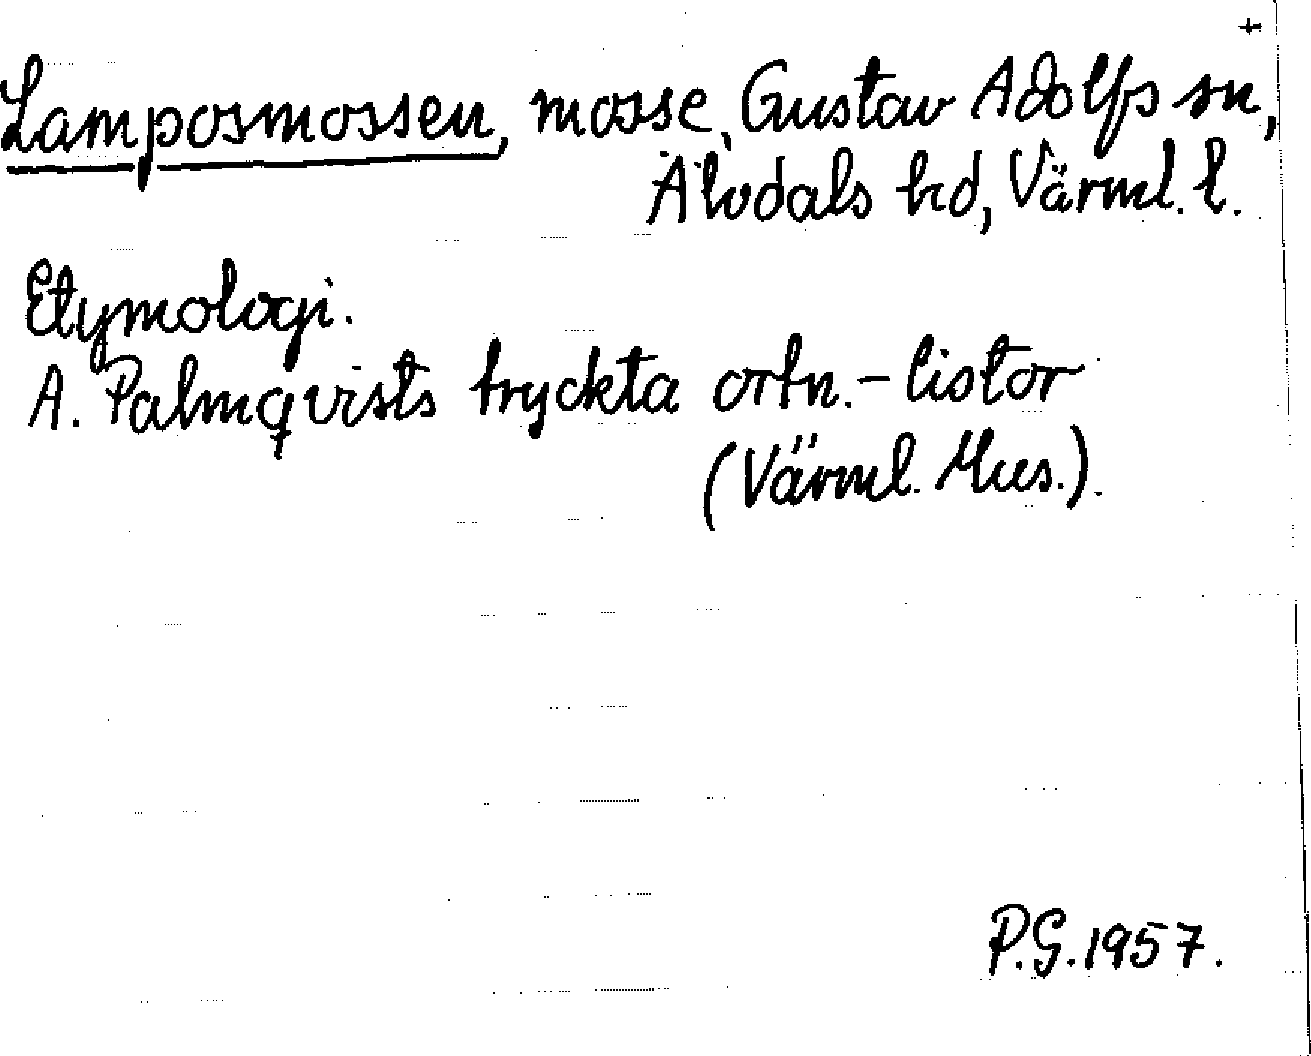 +
Lamposmossen, mosse, Gustav Adolfs sn,
Älvdals hd, Värml. l.
Etymologi.
A. Palmqvists tryckta ortn.-listor
(Värml. Mus.).
P.G. 1957.